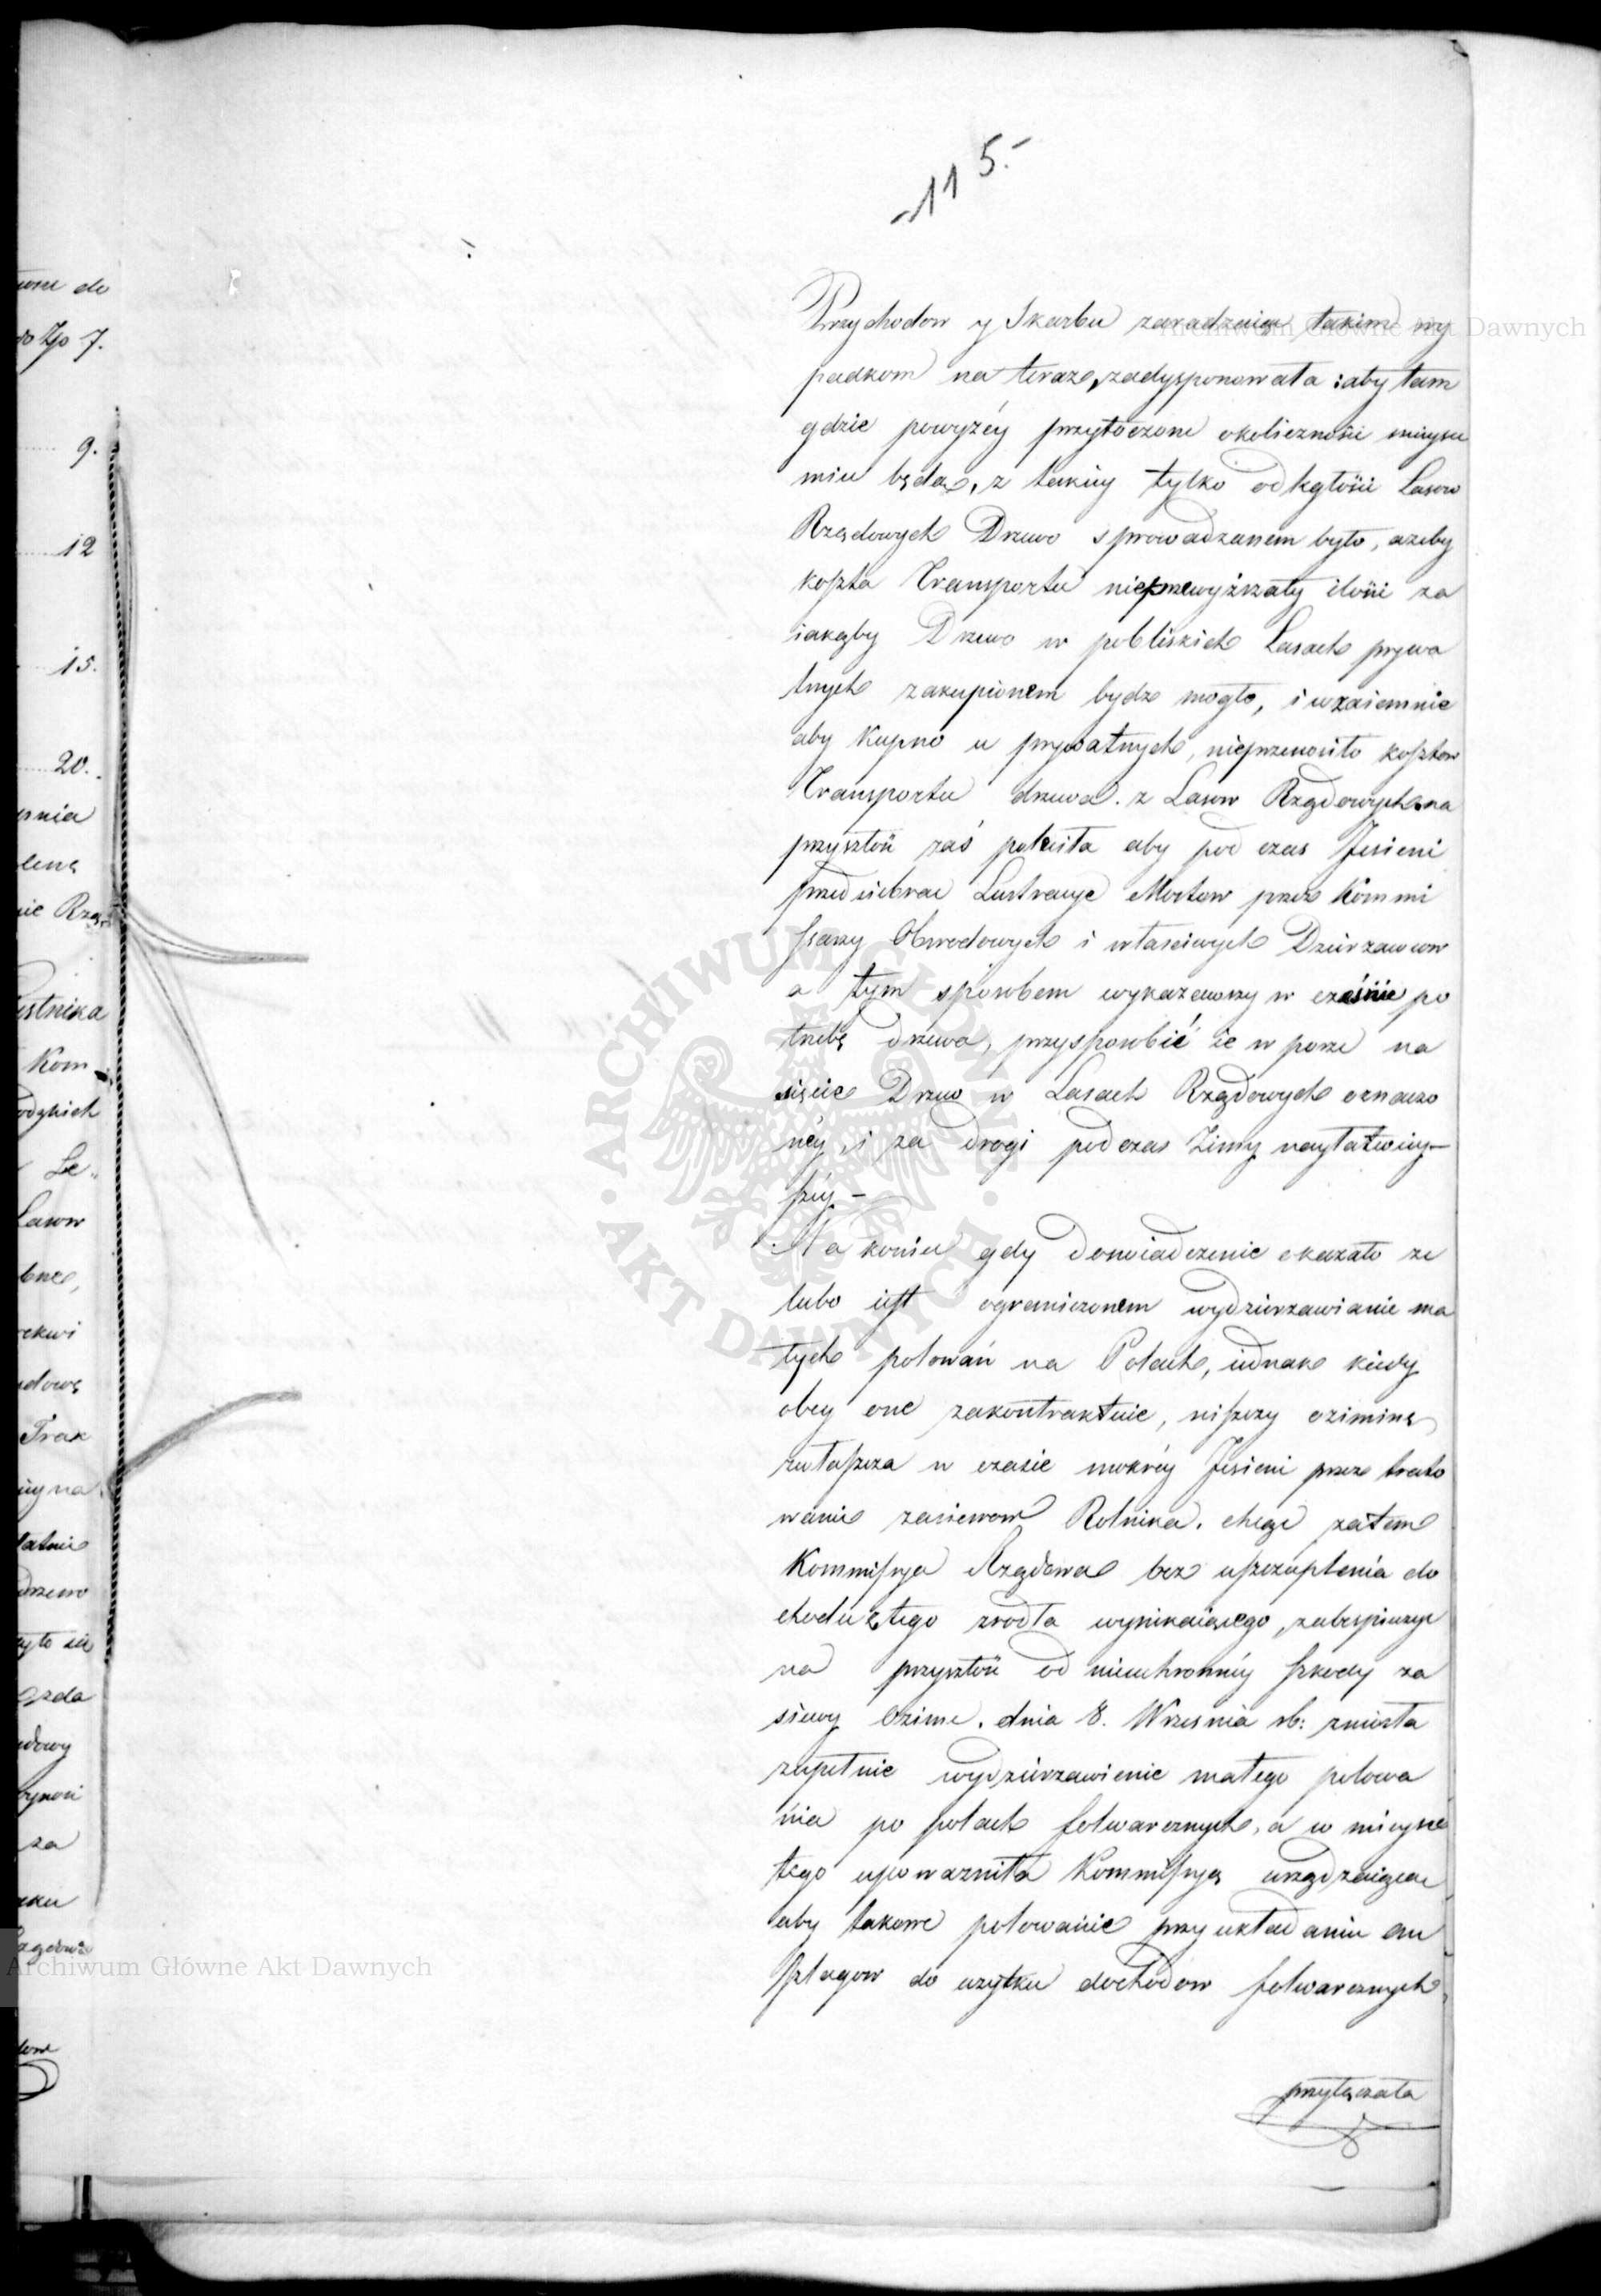 115.
Przychodow y Skarbu zaradzaiąc takim wy
padkom na teraz, zadysponowała: aby tam
gdzie powyżéy przytoczone okoliczności mieysce
mieć będą, z takiey tylko odległości Lasow
Rządowych Drzewo sprowadzanem było, ażeby
koszta Transportu nieprzewyższały ilości za
iakąby Drzewo w pobliskich Lasach prywa
tnych zakupionem bydz mogło, i wzaiemnie
aby kupno u prywatnych, nieprzenosiło kosztow
Transportu drzewa z Lasow Rządowych, na
przyszłość zaś poleciła aby pod czas Jesieni
przedsiebrać Lustracye Mostow przez Kommi
ssarzy Obwodowych i właściwych Dzierzawcow
a tym sposobem wykazawszy w cześnie po
trzebę drzewa, przysposobić ie w porze na
cięcie Drzew w Lasach Rządowych oznaczo
néy, i za drogi podczas Zimy nayłatwiey-
széy –
Na koniec gdy doswiadczenie okazało ze
lubo iest ograniczonem wydzierzawianie ma
łych polowań na Polach, iednak kiedy
obcy one zakontraktuie, niszczy oziminę
zwłaszcza w czasie mokréy Jesieni przez trato
wanie zasiewow Rolnika. chcąc zatem
Kommissya Rządowa bez uszczuplenia do
chodu z tego zrodła wynikaiącego, zabespieczyć
na przyszłość od nieuchronnéy szkody za
siewy Ozime. dnia 8. Wrzesnia rb: zniosła
zupełnie wydzierzawienie małego polowa
nia po polach folwarcznych, a w mieysce
tego upowazniła Kommissyą urządzaiącą
aby takowe polowanie przy układaniu an
szlagow do uzytku dochodow folwarcznych
przyłączała
one do
do Zp 7.
9.
12
15.
20.
pnia
Kom
Le
Lasow
Trak
drzewo
za
Archiwum Główne Akt Dawnych
Archiwum Główne Akt Dawnych
ARCHIWUM GŁÓWNE · AKT DAWNYCH ·